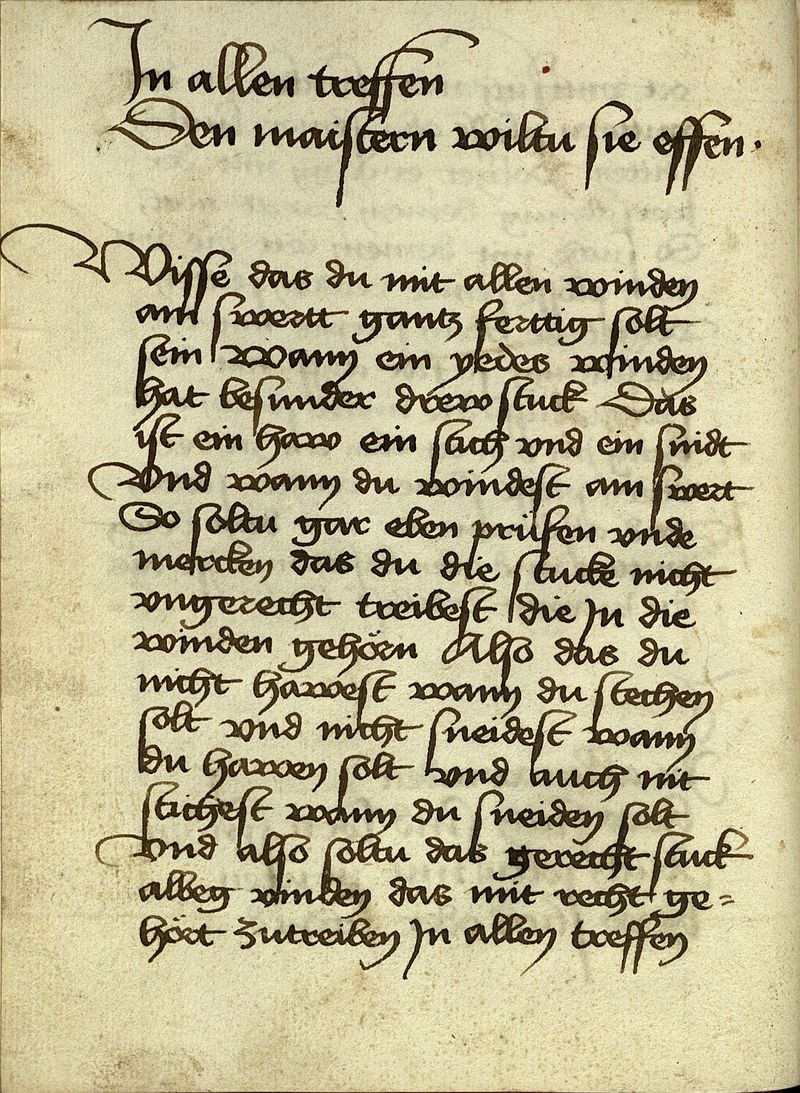 In allen treffen
Den maistern wiltu sie effen.
Wisse das du mit allen winden
am swertt gantz ferttig solt
sein wann ein yedes winden
hat besunder drew stuck Das
ist ein haw ein stich vnd ein snidt
Vnd wann du windest am swert
So soltu gar eben prüfen vnde
mercken das du die stucke nicht
vngerecht treibest die Jn die
winden gehörn Also das du
nicht hawest wann du stechen
solt vnd nicht sneidest wann
du hawen solt vnd auch nit
stichest wann du sneiden solt
Vnd also soltu das gerecht stuck
albeg vinden das mit recht ge=
hört zutreiben Jn allen treffen